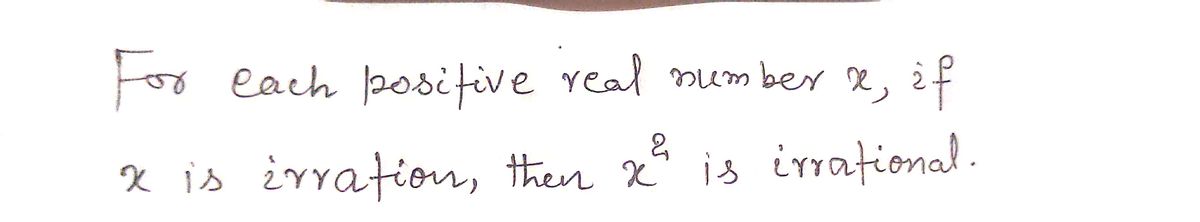 For each positive real number x, if
x is irration, then x² is irrational.